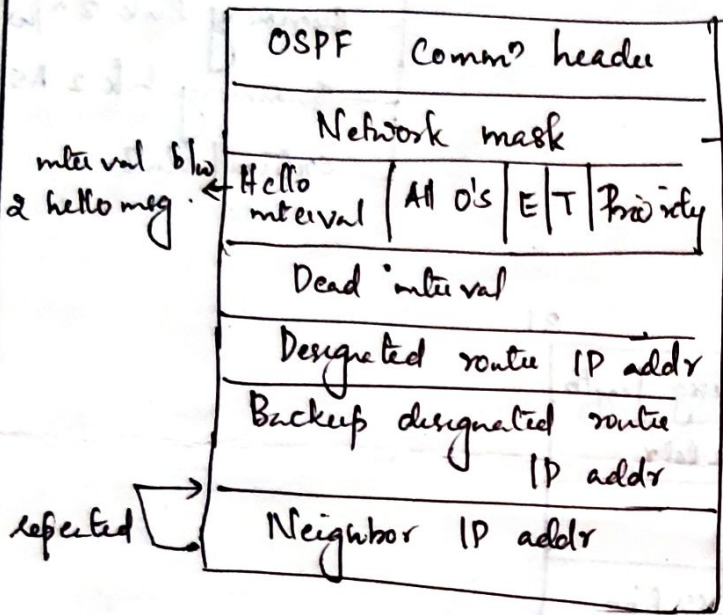 OSPF Commⁿ header
Network mask
interval b/w
2 hello msg.
Hello interval | All 0's | E | T | Priority
Dead interval
Designated router IP addr
Backup designated router
IP addr
repeated
Neighbor IP addr